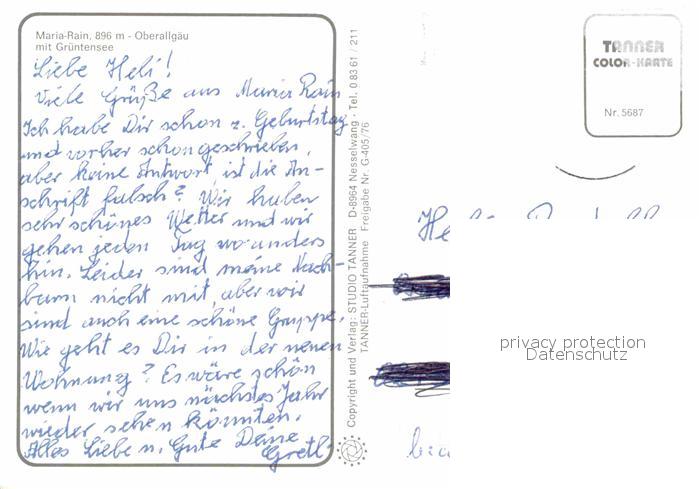 Maria-Rain, 896 m - Oberallgäu
mit Grüntensee
Liebe Heli!
Viele Grüße aus Maria Rain
Ich habe Dir schon z. Geburtstag
und vorher schon geschrieben,
aber keine Antwort, ist die An-
schrift falsch? Wir haben
sehr schönes Wetter und wir
gehen jeden Tag wo anders
hin. Leider sind meine Nach-
barn nicht mit, aber wir
sind auch eine schöne Gruppe.
Wie geht es Dir in der neuen
Wohnung? Es wäre schön
wenn wir uns nächstes Jahr
wieder sehen könnten.
Alles Liebe u. Gute Deine
Gretl
Copyright und Verlag: STUDIO TANNER D-8964 Nesselwang · Tel. 0 83 61 / 211
TANNER-Luftaufnahme Freigabe Nr. G-405/76
TANNER
COLOR-KARTE
Nr. 5687
privacy protection
Datenschutz